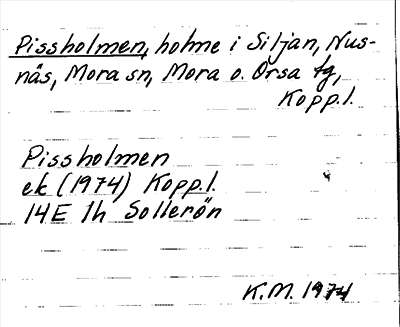 Pissholmen, holme i Siljan, Nus-
näs, Mora sn, Mora o. Orsa tg,
Kopp.l.
Pissholmen
ek (1974) Kopp.l.
14E 1h Sollerön
K.M. 1974